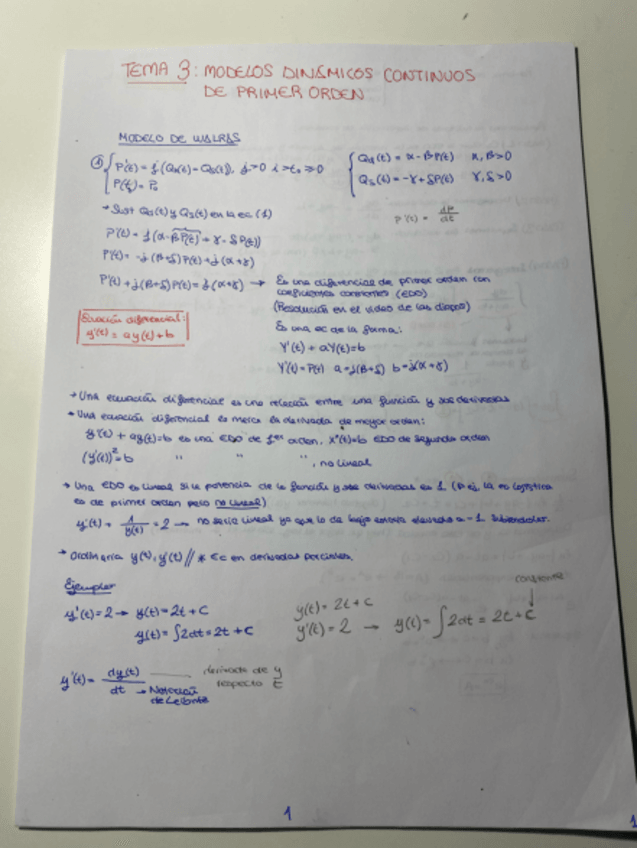 TEMA 3: MODELOS DINÁMICOS CONTINUOS
DE PRIMER ORDEN
MODELO DE WALRAS
① { P'(t) = j (Qd(t) - Qs(t)), j>0 t>t₀ ≥0
P(t₀) = P₀
{ Qd(t) = α - βP(t) α, β>0
Qs(t) = -γ + δP(t) γ, δ>0
P'(t) = dP/dt
→ Sust Qd(t) y Qs(t) en la ec (1)
P'(t) = j (α - βP(t) + γ - δP(t))
P'(t) = -j (β+δ) P(t) + j (α+γ)
P'(t) + j (β+δ) P(t) = j (α+γ) → Es una diferencial de primer orden con
coeficientes constantes (EDO)
(Resolución en el video de las diapos)
Es una ec de la forma:
Y'(t) + aY(t) = b
Y'(t) = P(t) a = j(β+δ) b = j(α+γ)
Ecuación diferencial:
y'(t) = ay(t) + b
→ Una ecuación diferencial es una relación entre una función y sus derivadas
→ Una ecuación diferencial es marca la derivada de mayor orden:
y'(t) + ay(t) = b es una EDO de 1er orden, x''(t) = b EDO de segundo orden
(y'(t))² = b " " ", no lineal
→ Una EDO es lineal si la potencia de la función y sus derivadas es 1 (P.ej, la ec logística
es de primer orden pero no lineal)
y'(t) + 1/y(t) = 2 → no sería lineal ya que lo de abajo estaría elevado a -1 subiéndolo.
→ Ordinaria y(t), y'(t) // * Ec en derivadas parciales.
Ejemplos
y'(t) = 2 → y(t) = 2t + C
y(t) = ∫2dt = 2t + C
y(t) = 2t + C
constante
y'(t) = 2 → y(t) = ∫2dt = 2t + C
y'(t) = dy(t)/dt derivada de y
respecto t
→ Notación
de Leibnitz
1
1